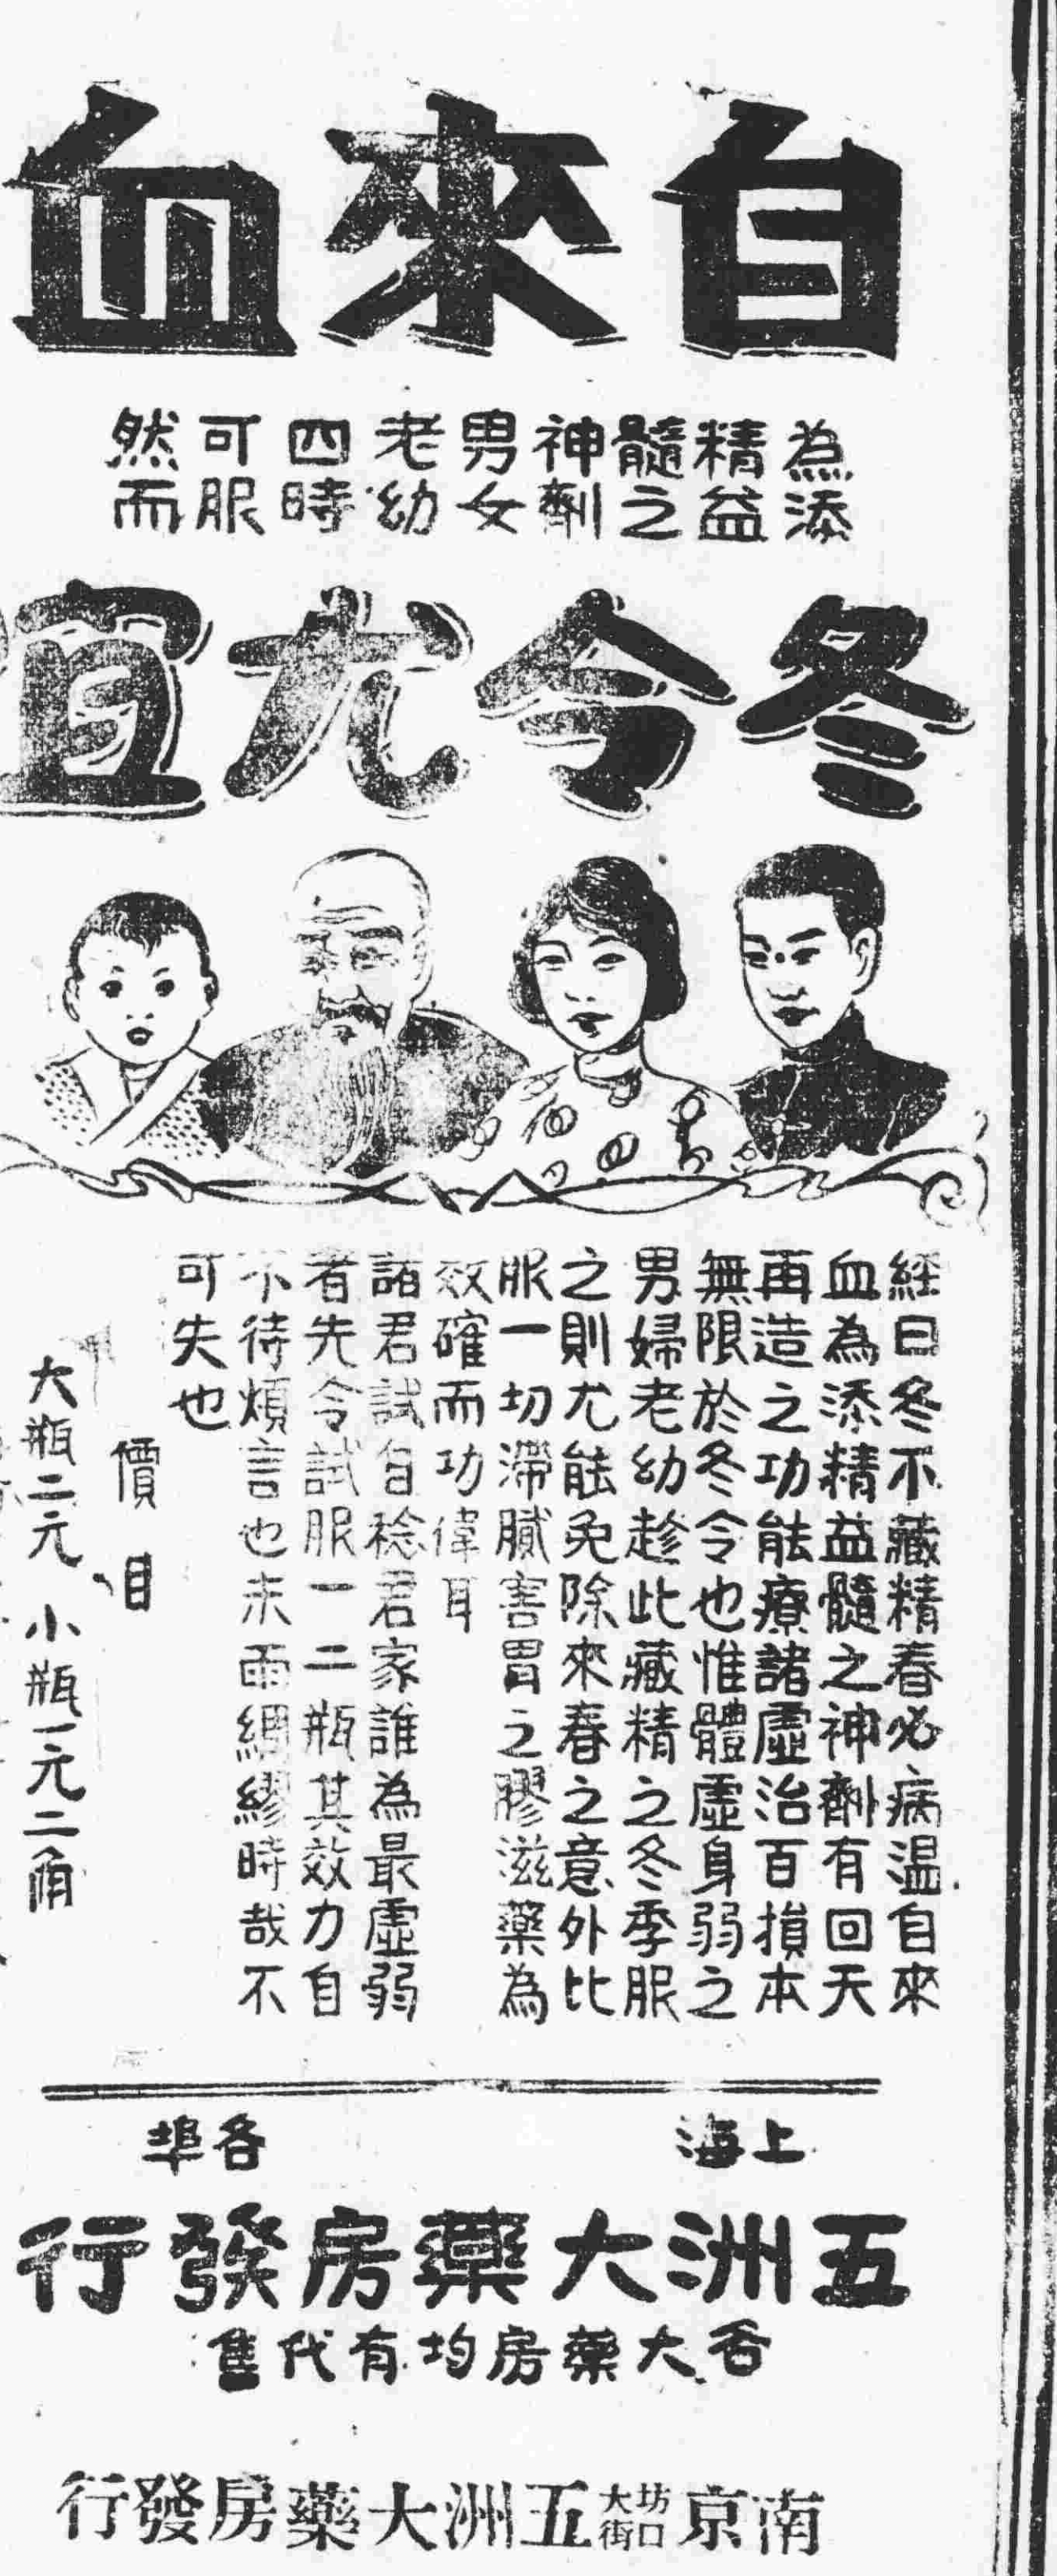 自來血
為添
精益
髓之
神劑
男女
老幼
四時
可服
然而
冬令尤宜
經曰冬不藏精春必病温自來
血為添精益髓之神劑有回天
再造之功能療諸虛治百損本
無限於冬令也惟體虛身弱之
男婦老幼趁此藏精之冬季服
之則尤能免除來春之意外比
服一切滯膩害胃之膠滋藥為
效確而功偉耳
諸君試自稔君家誰為最虛弱
者先令試服一二瓶其效力自
不待煩言也未雨綢繆時哉不
可失也
價目
大瓶二元 小瓶一元二角
上海 各埠
五洲大藥房發行
各大藥房均有代售
南京坊口大街五洲大藥房發行